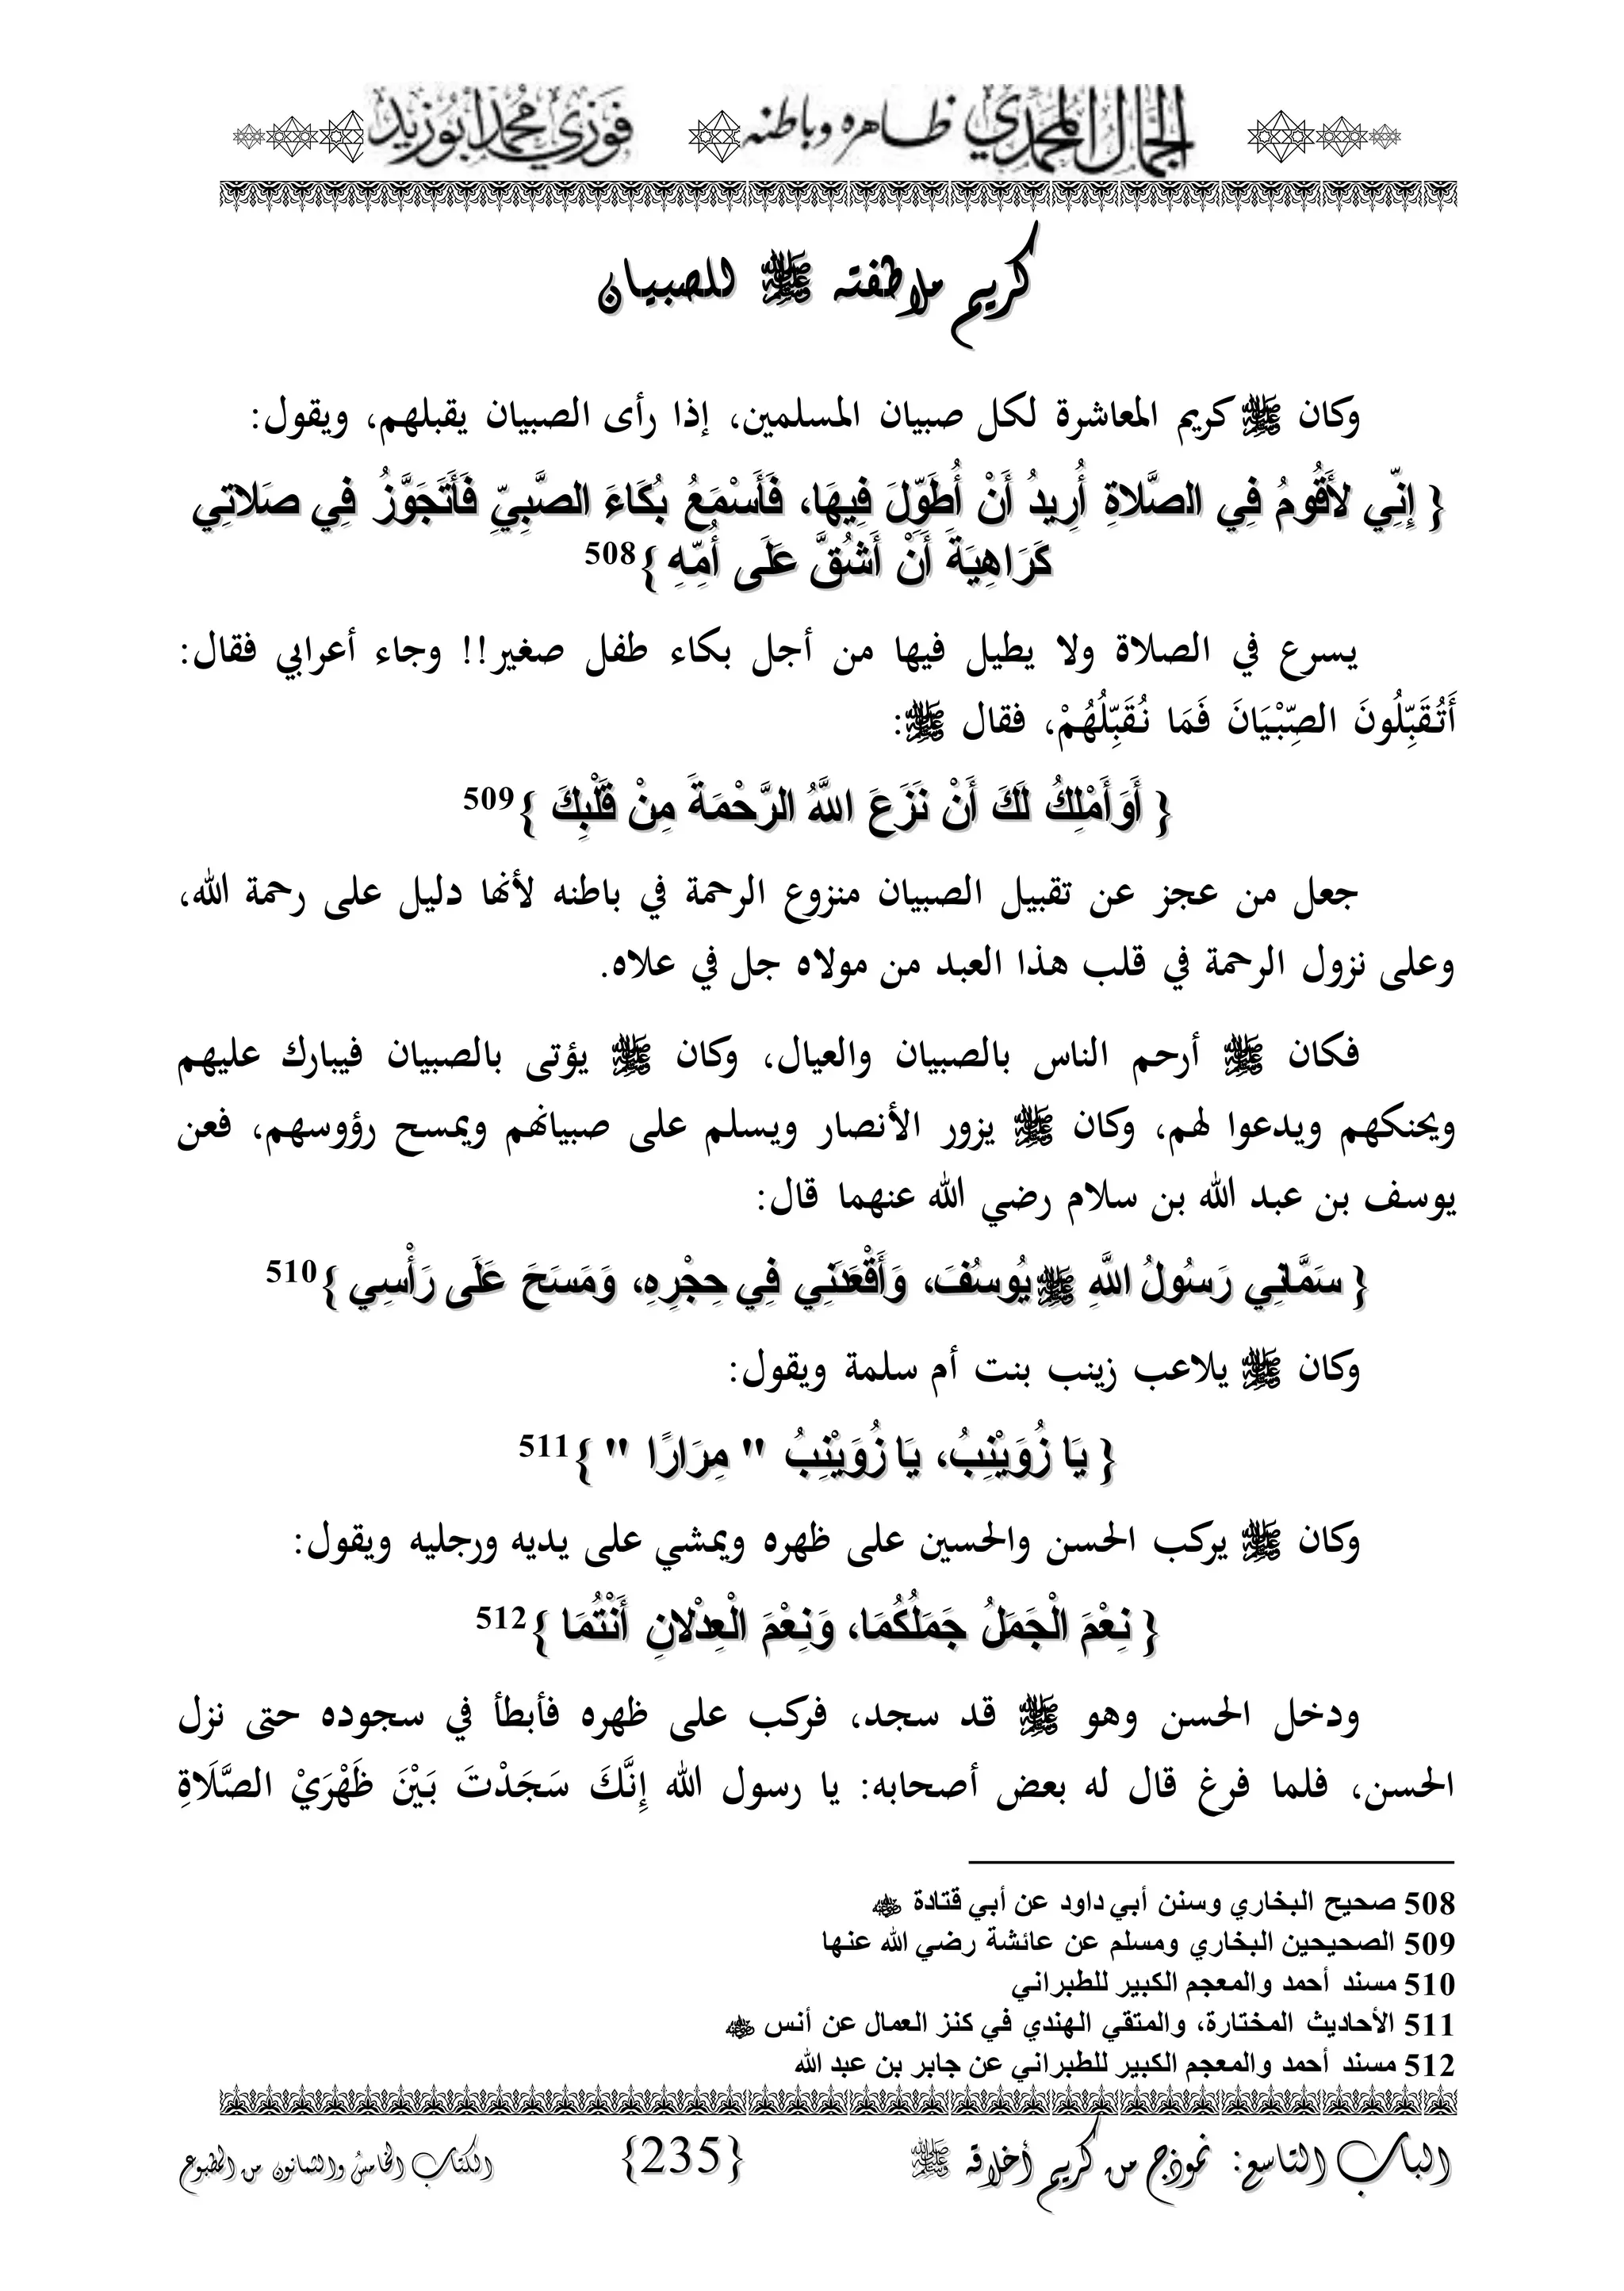 الجمال المحمدي ظاهره وباطنه فوزي محمد أبوزيد
كريم ملاطفته ﷺ للصبيان
وكان ﷺ كريم المعاشرة لكل صبيان المسلمين، إذا رأى الصبيان يقبلهم، ويقول:
{ إِنِّي لأَقُومُ فِي الصَّلاةِ أُرِيدُ أَنْ أُطَوِّلَ فِيهَا، فَأَسْمَعُ بُكَاءَ الصَّبِيِّ فَأَتَجَوَّزُ فِي صَلاتِي
كَرَاهِيَةَ أَنْ أَشُقَّ عَلَى أُمِّهِ }508
يسرع في الصلاة ولا يطيل فيها من أجل بكاء طفل صغير!! وجاء أعرابي فقال:
أَتُقَبِّلُونَ الصِّبْيَانَ فَمَا نُقَبِّلُهُمْ، فقال ﷺ:
{ أَوَأَمْلِكُ لَكَ أَنْ نَزَعَ اللَّهُ الرَّحْمَةَ مِنْ قَلْبِكَ }509
جعل من عجز عن تقبيل الصبيان منزوع الرحمة في باطنه لأنها دليل على رحمة الله،
وعلى نزول الرحمة في قلب هذا العبد من مولاه جل في علاه.
فكان ﷺ أرحم الناس بالصبيان والعيال، وكان ﷺ يؤتى بالصبيان فيبارك عليهم
ويحنكهم ويدعوا لهم، وكان ﷺ يزور الأنصار ويسلم على صبيانهم ويمسح رؤوسهم، فعن
يوسف بن عبد الله بن سلام رضي الله عنهما قال:
{ سَمَّانِي رَسُولُ اللَّهِ ﷺ يُوسُفَ، وَأَقْعَدَنِي فِي حِجْرِهِ، وَمَسَحَ عَلَى رَأْسِي }510
وكان ﷺ يلاعب زينب بنت أم سلمة ويقول:
{ يَا زُوَيْنِبُ، يَا زُوَيْنِبُ " مِرَارًا " }511
وكان ﷺ يركب الحسن والحسين على ظهره ويمشي على يديه ورجليه ويقول:
{ نِعْمَ الْجَمَلُ جَمَلُكُمَا، وَنِعْمَ الْعِدْلانِ أَنْتُمَا }512
ودخل الحسن وهو ﷺ قد سجد، فركب على ظهره فأبطأ في سجوده حتى نزل
الحسن، فلما فرغ قال له بعض أصحابه: يا رسول الله إِنَّكَ سَجَدْتَ بَيْنَ ظَهْرَيْ الصَّلَاةِ
508 صحيح البخاري وسنن أبي داود عن أبي قتادة ؓ
509 الصحيحين البخاري ومسلم عن عائشة رضي الله عنها
510 مسند أحمد والمعجم الكبير للطبراني
511 الأحاديث المختارة، والمتقي الهندي في كنز العمال عن أنس ؓ
512 مسند أحمد والمعجم الكبير للطبراني عن جابر بن عبد الله
الباب التاسع: نموذج من كريم أخلاقه ﷺ {235} الكتاب الخامس والثمانون من المطبوع